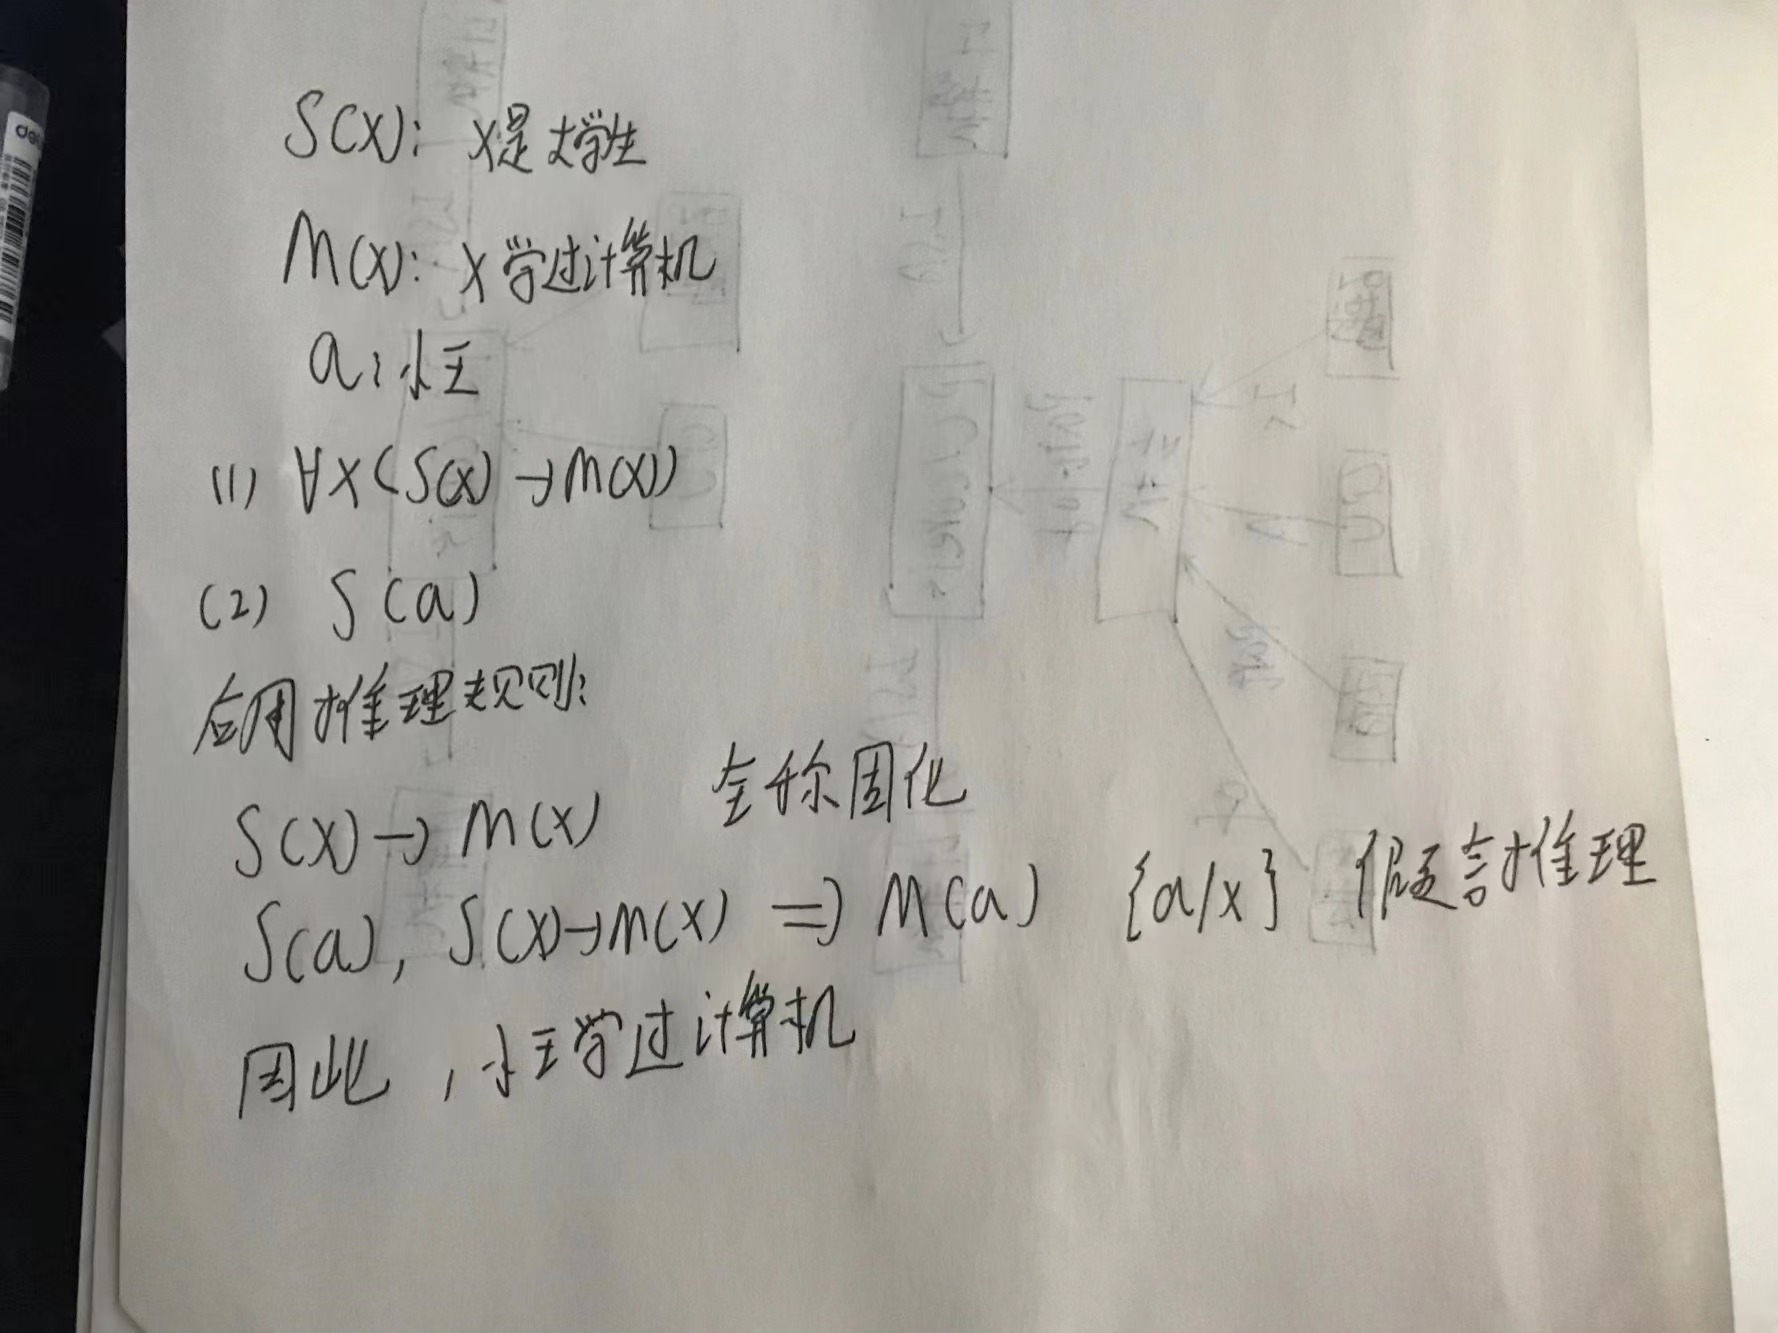 S(x): x是大学生
M(x): x学过计算机
a: 小王
(1) ∀x(S(x)→M(x))
(2) S(a)
应用推理规则:
S(x)→M(x) 全称固化
S(a), S(x)→M(x) ⇒ M(a) {a/x} 假言推理
因此，小王学过计算机